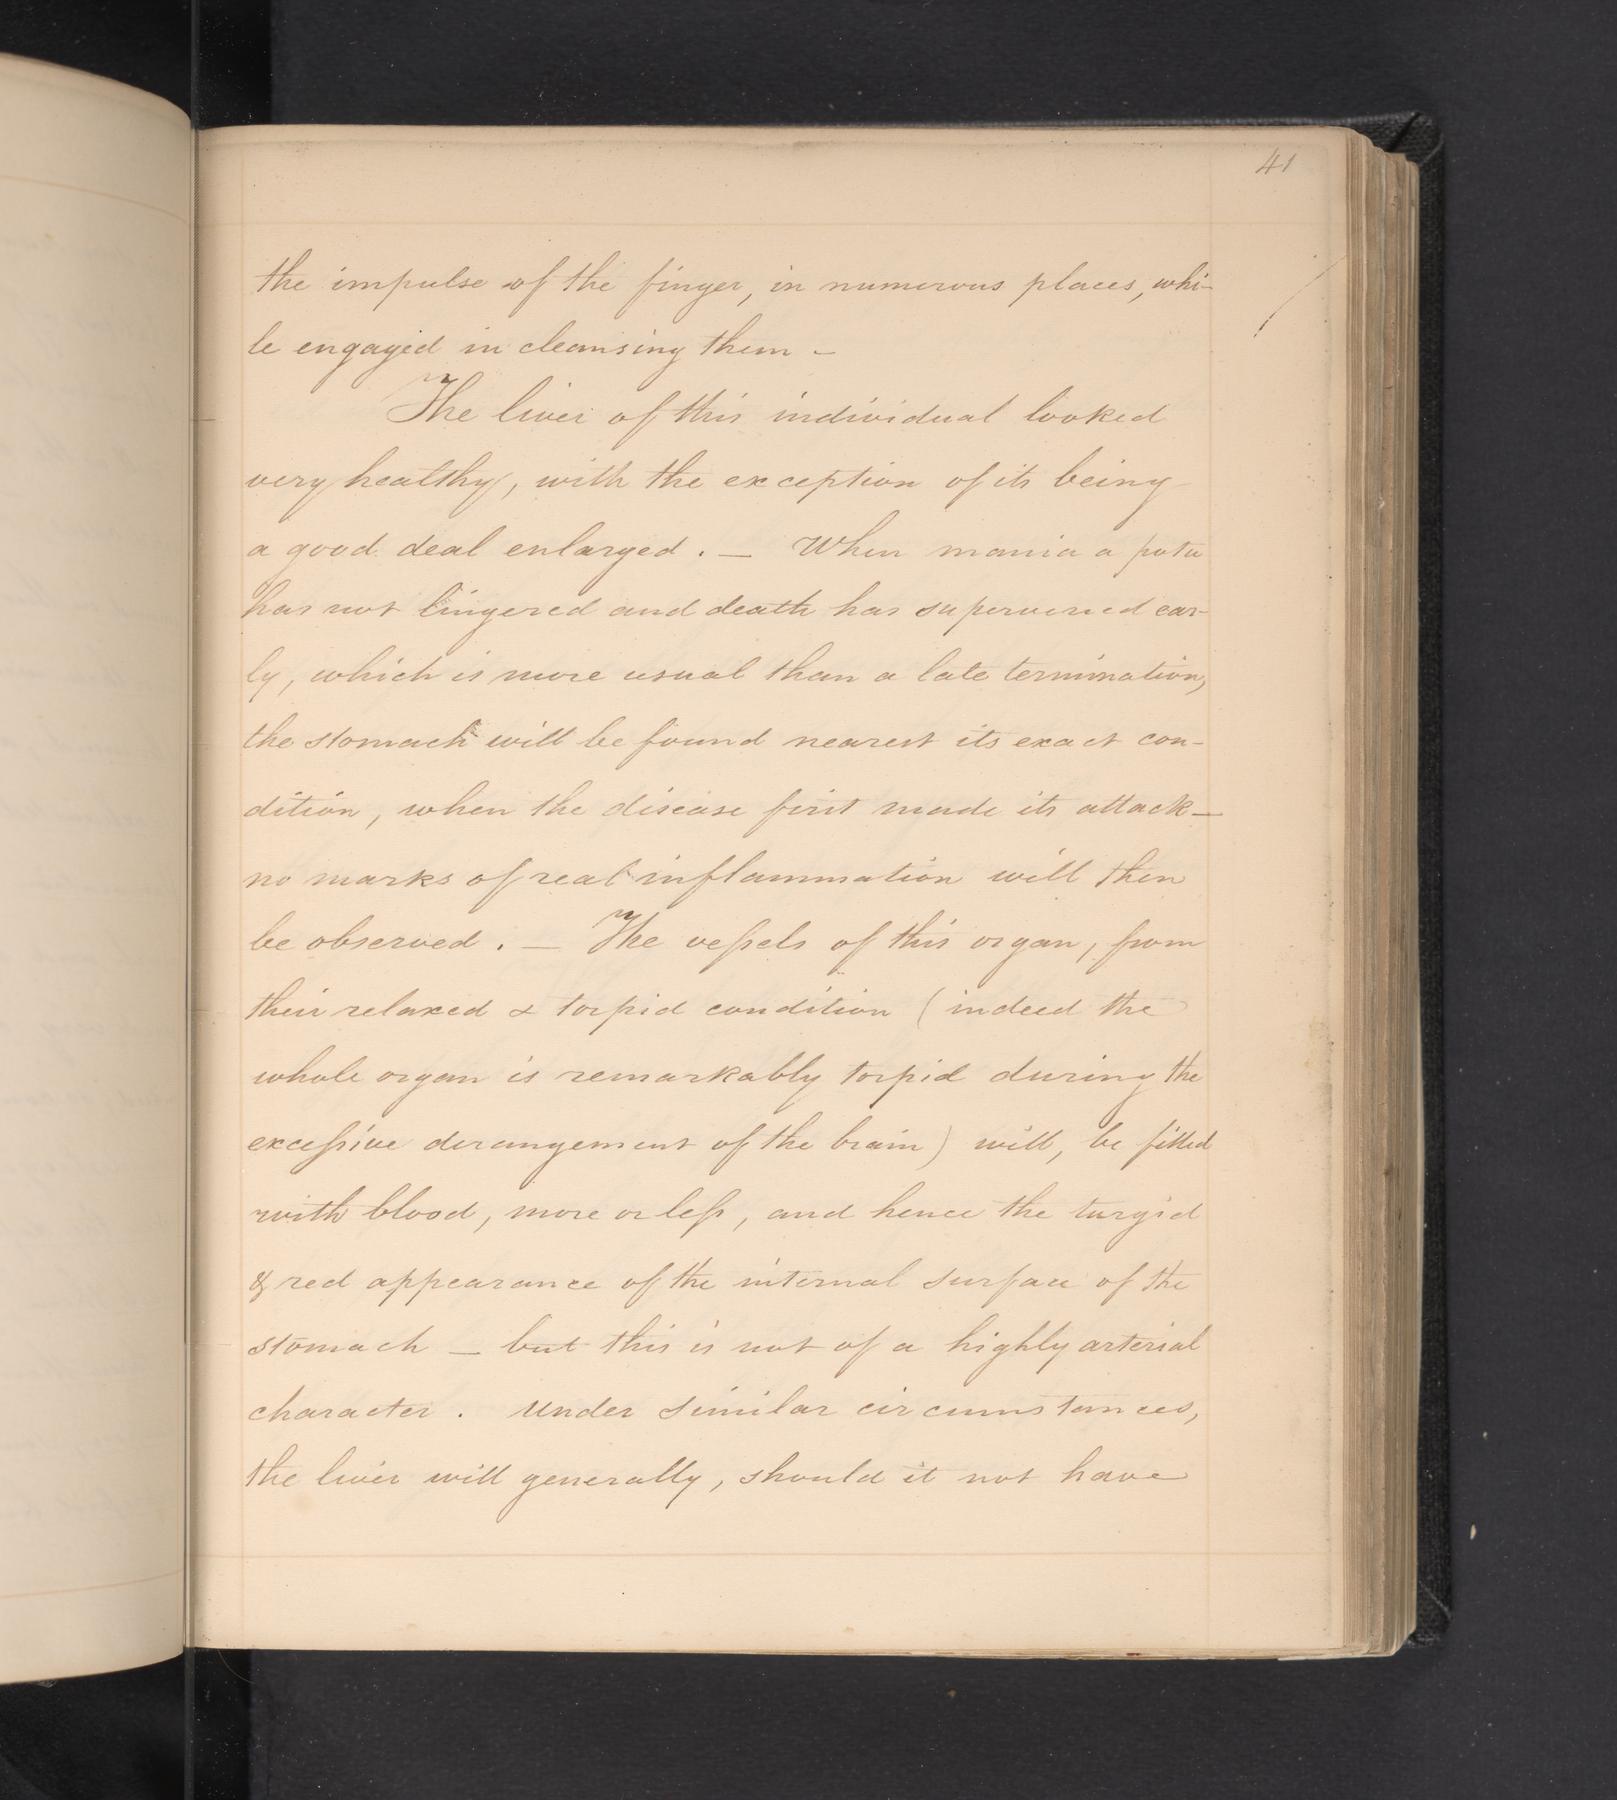 41
the impulse of the finger, in numerous places, whi-
le engaged in cleansing them -
The liver of this individual looked
very healthy, with the exception of its being
a good deal enlarged. — When mania a potu
has not lingered and death has supervened ear-
ly, which is more usual than a late termination,
the stomach will be found nearest its exact con-
dition, when the disease first made its attack—
no marks of real inflammation will then
be observed. — The veſsels of this organ, from
their relaxed & torpid condition (indeed the
whole organ is remarkably torpid during the
exceſsive derangement of the brain) will, be filled
with blood, more or leſs, and hence the turgid
& red appearance of the internal surface of the
stomach — but this is not of a highly arterial
character. Under similar circumstances,
the liver will generally, should it not have